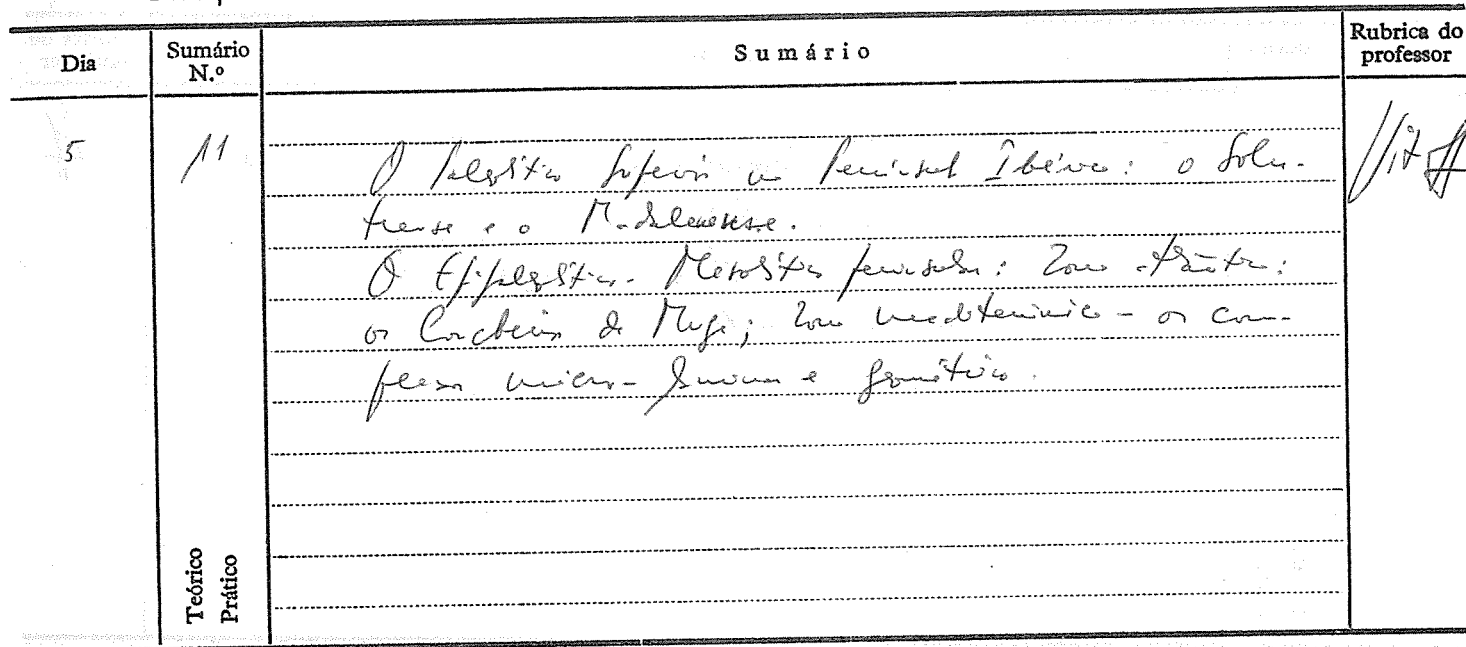 Dia
Sumário N.º
Sumário
Rubrica do professor
5
11
O Paleolítico Superior na Península Ibérica: o Solu-
trense e o Madalenense.
O Epipaleolítico-Mesolítico peninsular: Zona atlântica:
os Concheiros de Muge; zona mediterrânica - os com-
plexos micro-laminar e geométrico.
Teórico
Prático